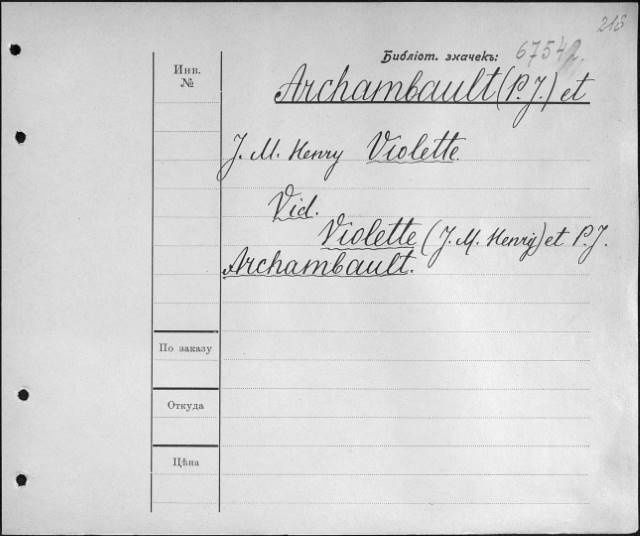 218
Библіот. значекъ: 6754
Инв.
№
Archambault (P. J.) et
J. M. Henry Violette.
Vid.
Violette (J. M. Henry) et P. J.
Archambault.
По заказу
Откуда
Цѣна